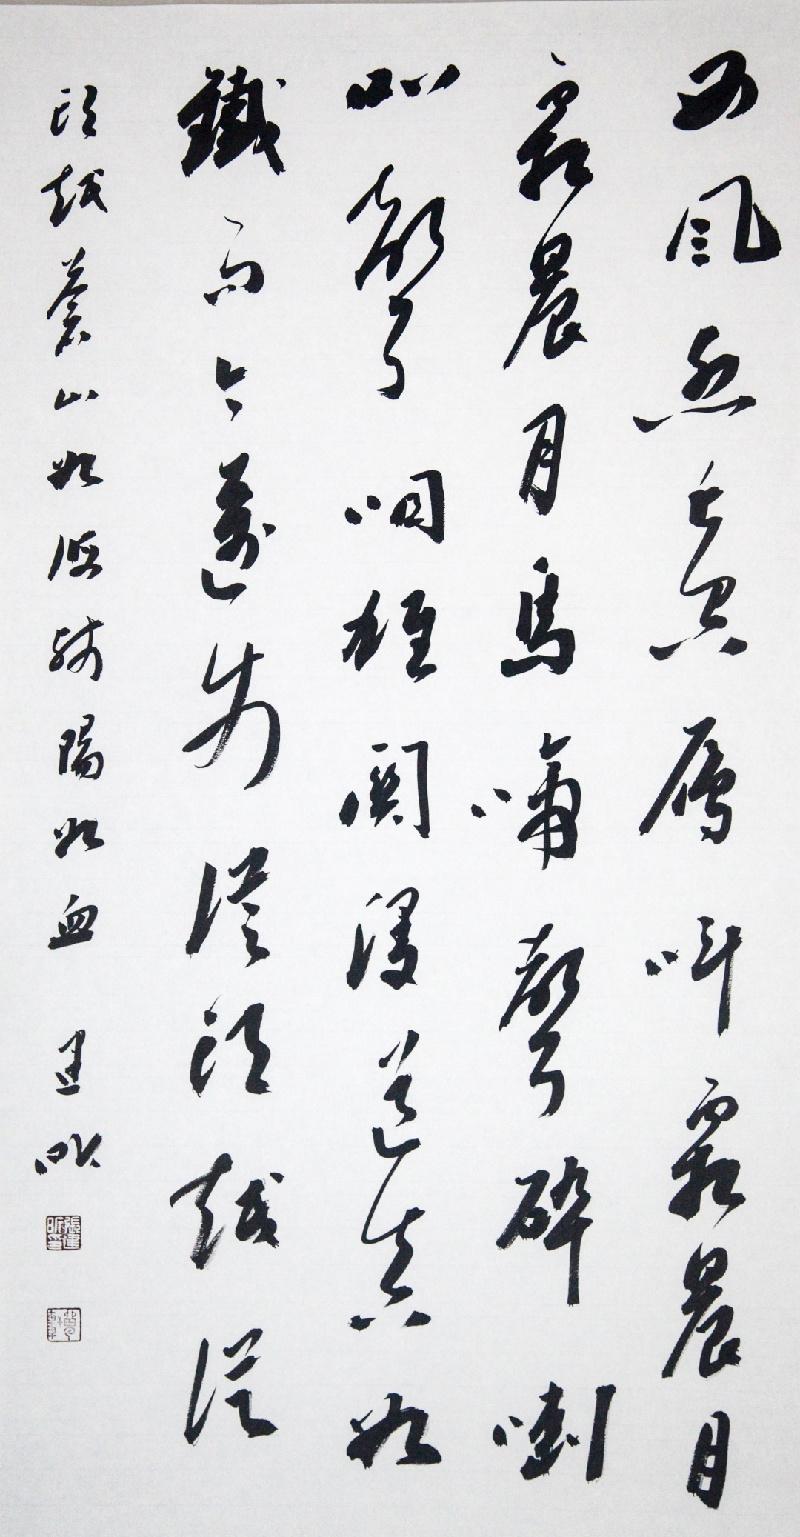 西風烈長空雁叫霜晨月
霜晨月馬啼聲碎喇
叭聲咽雄關漫道真如
鐵而今邁步從頭越從
頭越蒼山如海殘陽如血 建昕
張建昕印